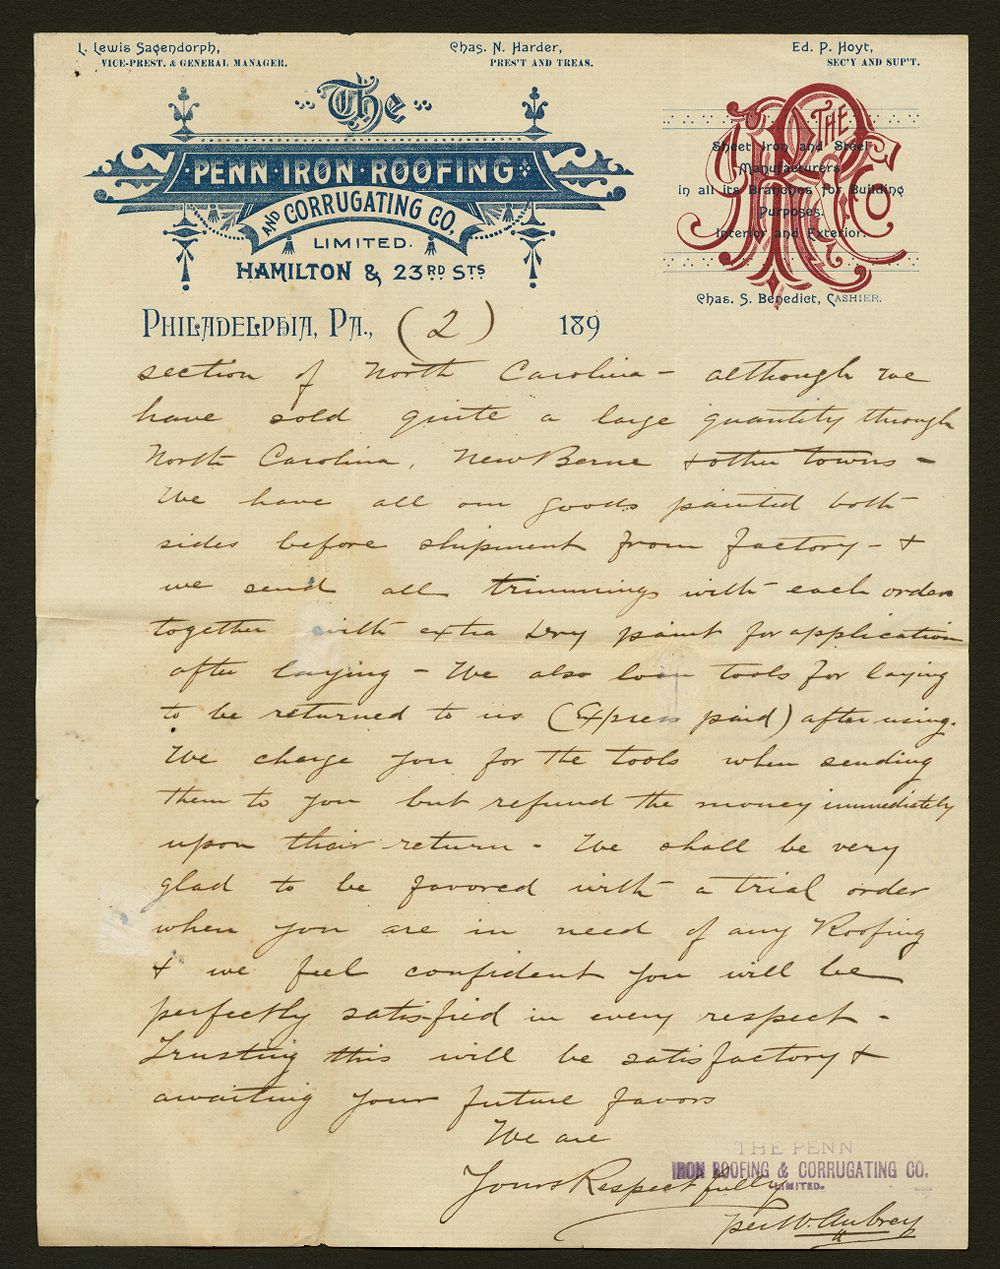 L. Lewis Sagendorph,
VICE-PREST. & GENERAL MANAGER.
Chas. N. Harder,
PRES'T AND TREAS.
Ed. P. Hoyt,
SEC'Y AND SUP'T.
The
PENN · IRON · ROOFING
AND CORRUGATING CO.
LIMITED.
HAMILTON & 23RD STS
THE
PRCo
Sheet Iron and Steel
Manufacturers
in all its Branches for Building
Purposes.
Interior and Exterior.
Chas. S. Benedict, CASHIER.
PHILADELPHIA, PA., (2) 189
section of North Carolina - although we
have sold quite a large quantity through
North Carolina, New Berne + other towns -
We have all our goods painted both
sides before shipment from factory - +
we send all trimmings with each order
together with extra Dry paint for application
after laying - We also loan tools for laying
to be returned to us (Express paid) after using.
We charge you for the tools when sending
them to you but refund the money immediately
upon their return - We shall be very
glad to be favored with a trial order
when you are in need of any Roofing
+ we feel confident you will be
perfectly satisfied in every respect -
Trusting this will be satisfactory +
awaiting your future favors
We are
Yours Respectfully
THE PENN
IRON ROOFING & CORRUGATING CO.
LIMITED.
per W. Aubrey